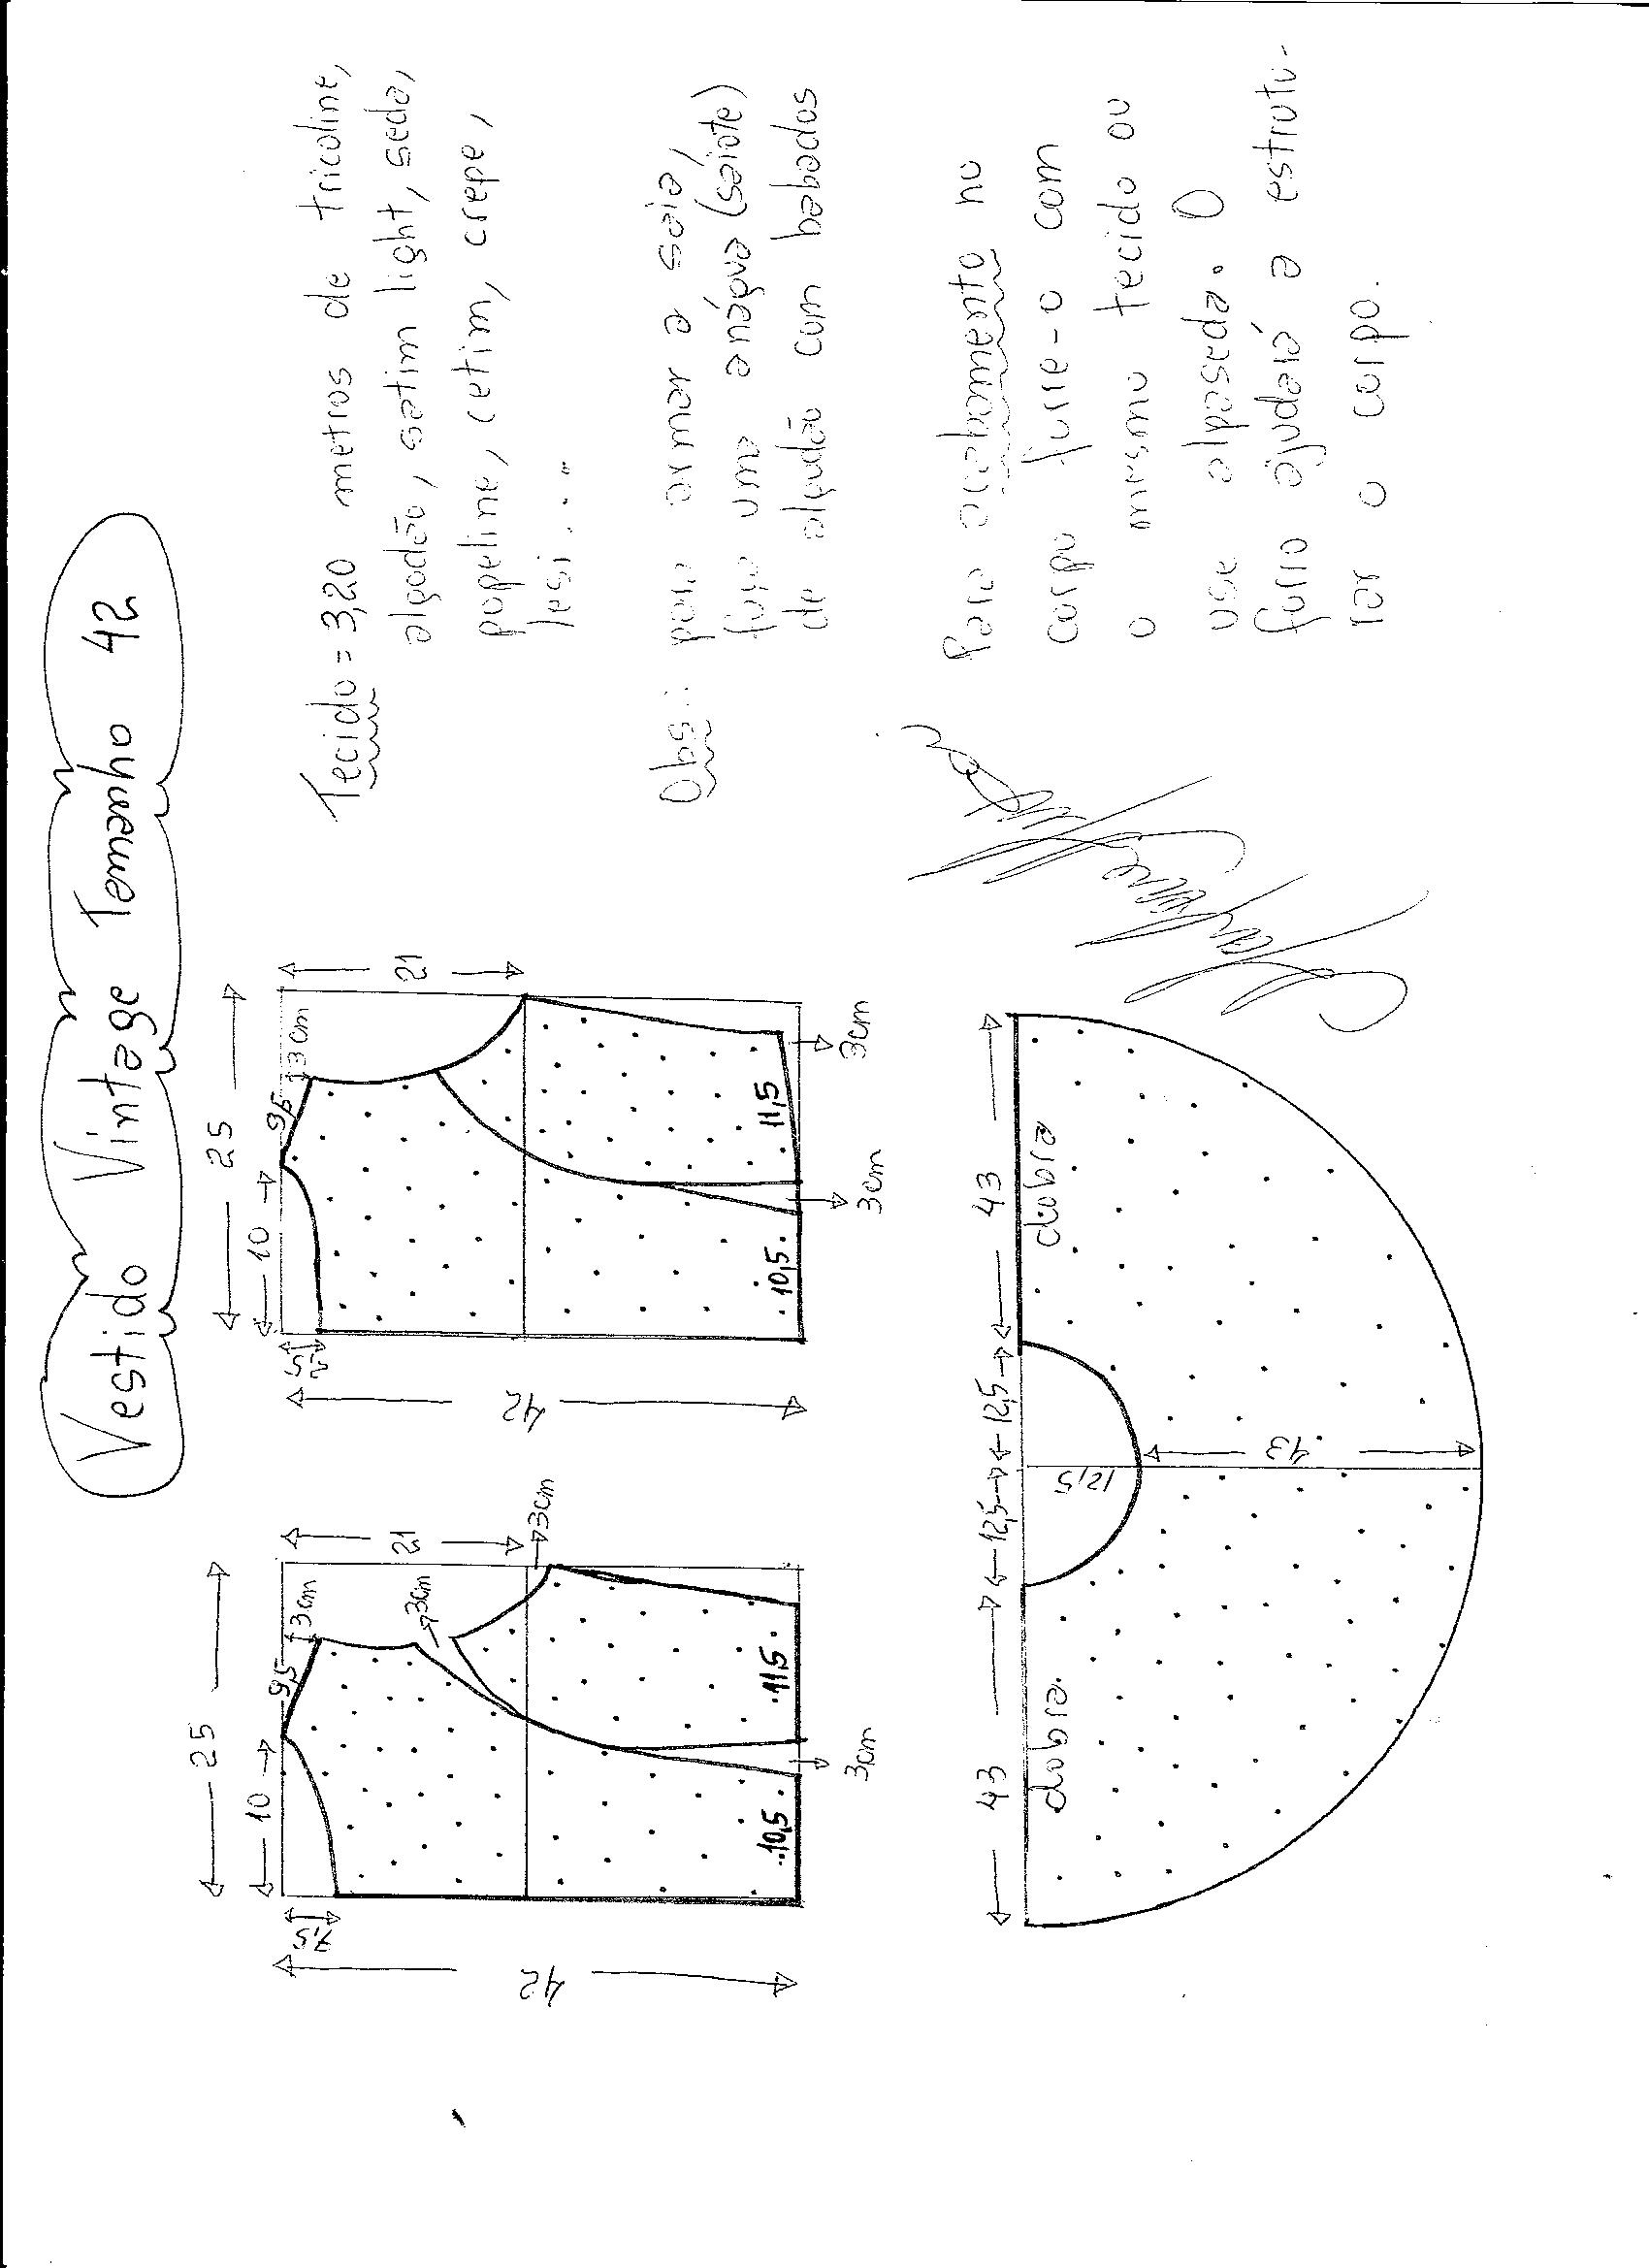 Vestido Vintage Tamanho 42
25
10
9,5
3cm
7,5
42
21
3cm
3cm
10,5
11,5
3cm
25
10
9,5
3cm
2,5
42
21
10,5
11,5
3cm
3cm
Tecido = 3,20 metros de tricoline,
algodão, satim light, seda,
popeline, cetim, crepe,
lesi...
Obs.: para armar a saia,
faça uma anágua (saiote)
de algodão com babados
Para acabamento no
corpo forre-o com
o mesmo tecido ou
use alpaseda. O
forro ajudará a estrutu-
rar o corpo.
43
12,5
12,5
43
dobra
12,5
dobra
43